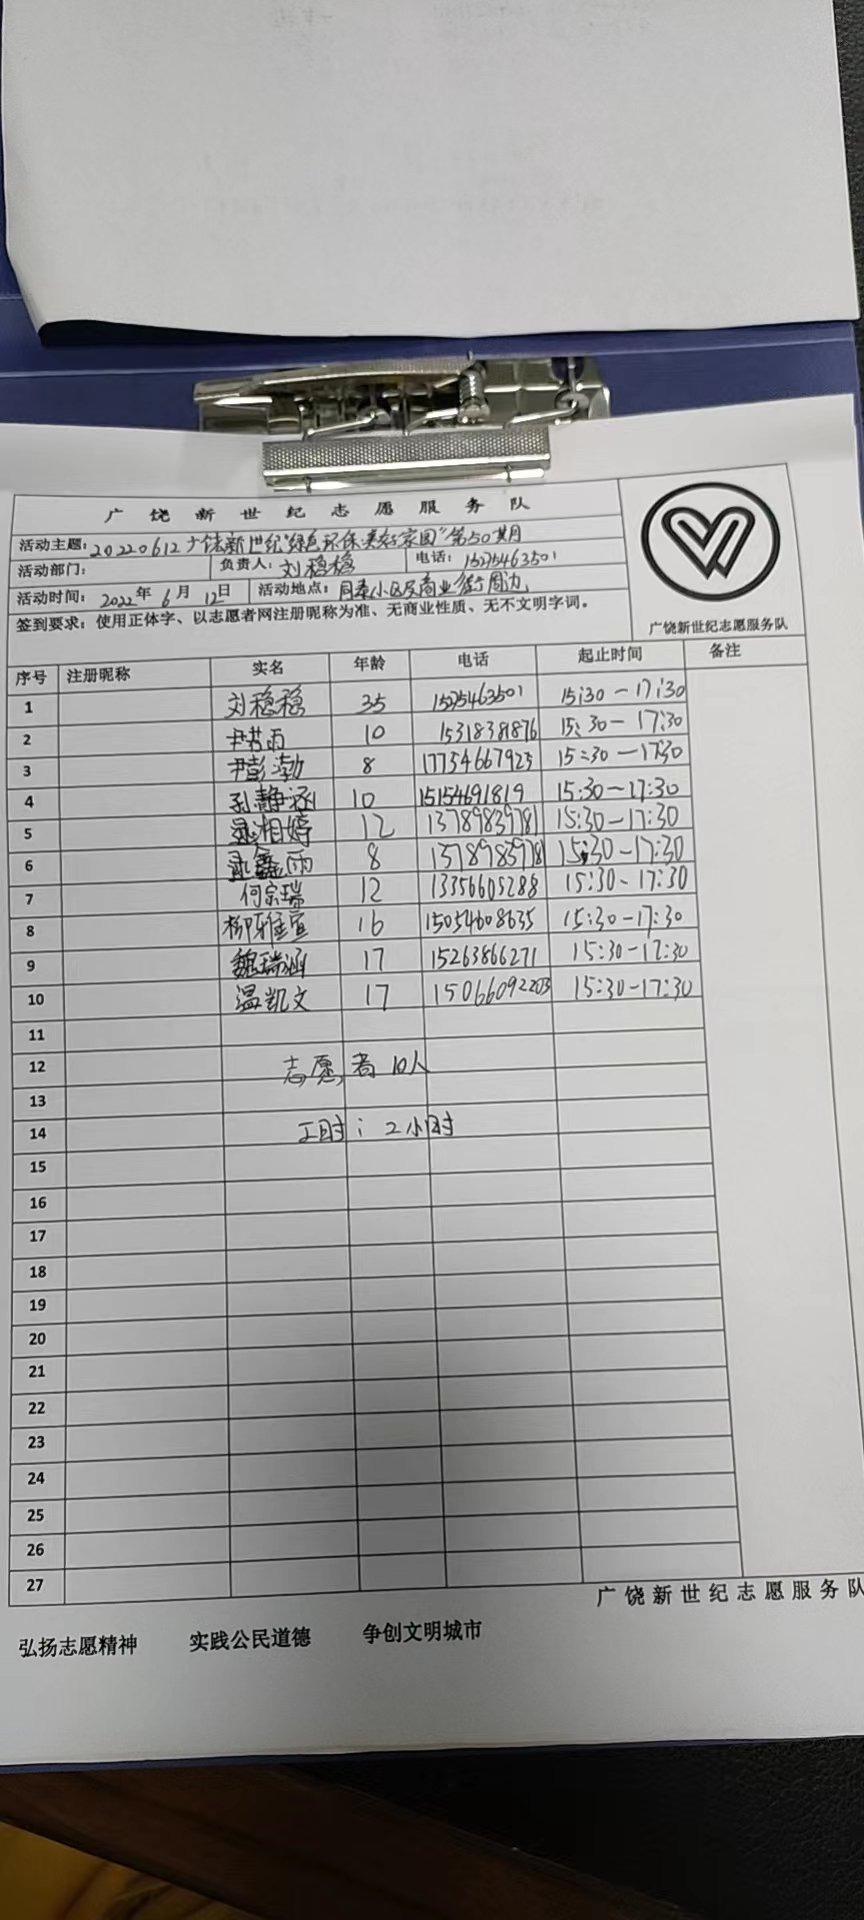 广饶新世纪志愿服务队
活动主题：20220612广饶新世纪"绿色环保美好家园"第50期
活动部门： 负责人：刘稳稳 电话：15275463501
活动时间：2022年6月12日 活动地点：同泰小区及商业街周边
签到要求：使用正体字、以志愿者网注册昵称为准、无商业性质、无不文明字词。
广饶新世纪志愿服务队
序号 注册昵称 实名 年龄 电话 起止时间 备注
1 刘稳稳 35 15275463501 15:30-17:30
2 尹若雨 10 15318381876 15:30-17:30
3 尹彭渤 8 17754667925 15:30-17:30
4 孙静涵 10 15154691819 15:30-17:30
5 湘婷 12 13789839781 15:30-17:30
6 鑫雨 8 13789839781 15:30-17:30
7 何宗瑞 12 13356605288 15:30-17:30
8 柳雅宣 16 15054608635 15:30-17:30
9 魏瑞涵 17 15263866271 15:30-17:30
10 温凯文 17 15066092203 15:30-17:30
11
12 志愿者10人
13
14 工时：2小时
15
16
17
18
19
20
21
22
23
24
25
26
27
广饶新世纪志愿服务队
弘扬志愿精神 实践公民道德 争创文明城市